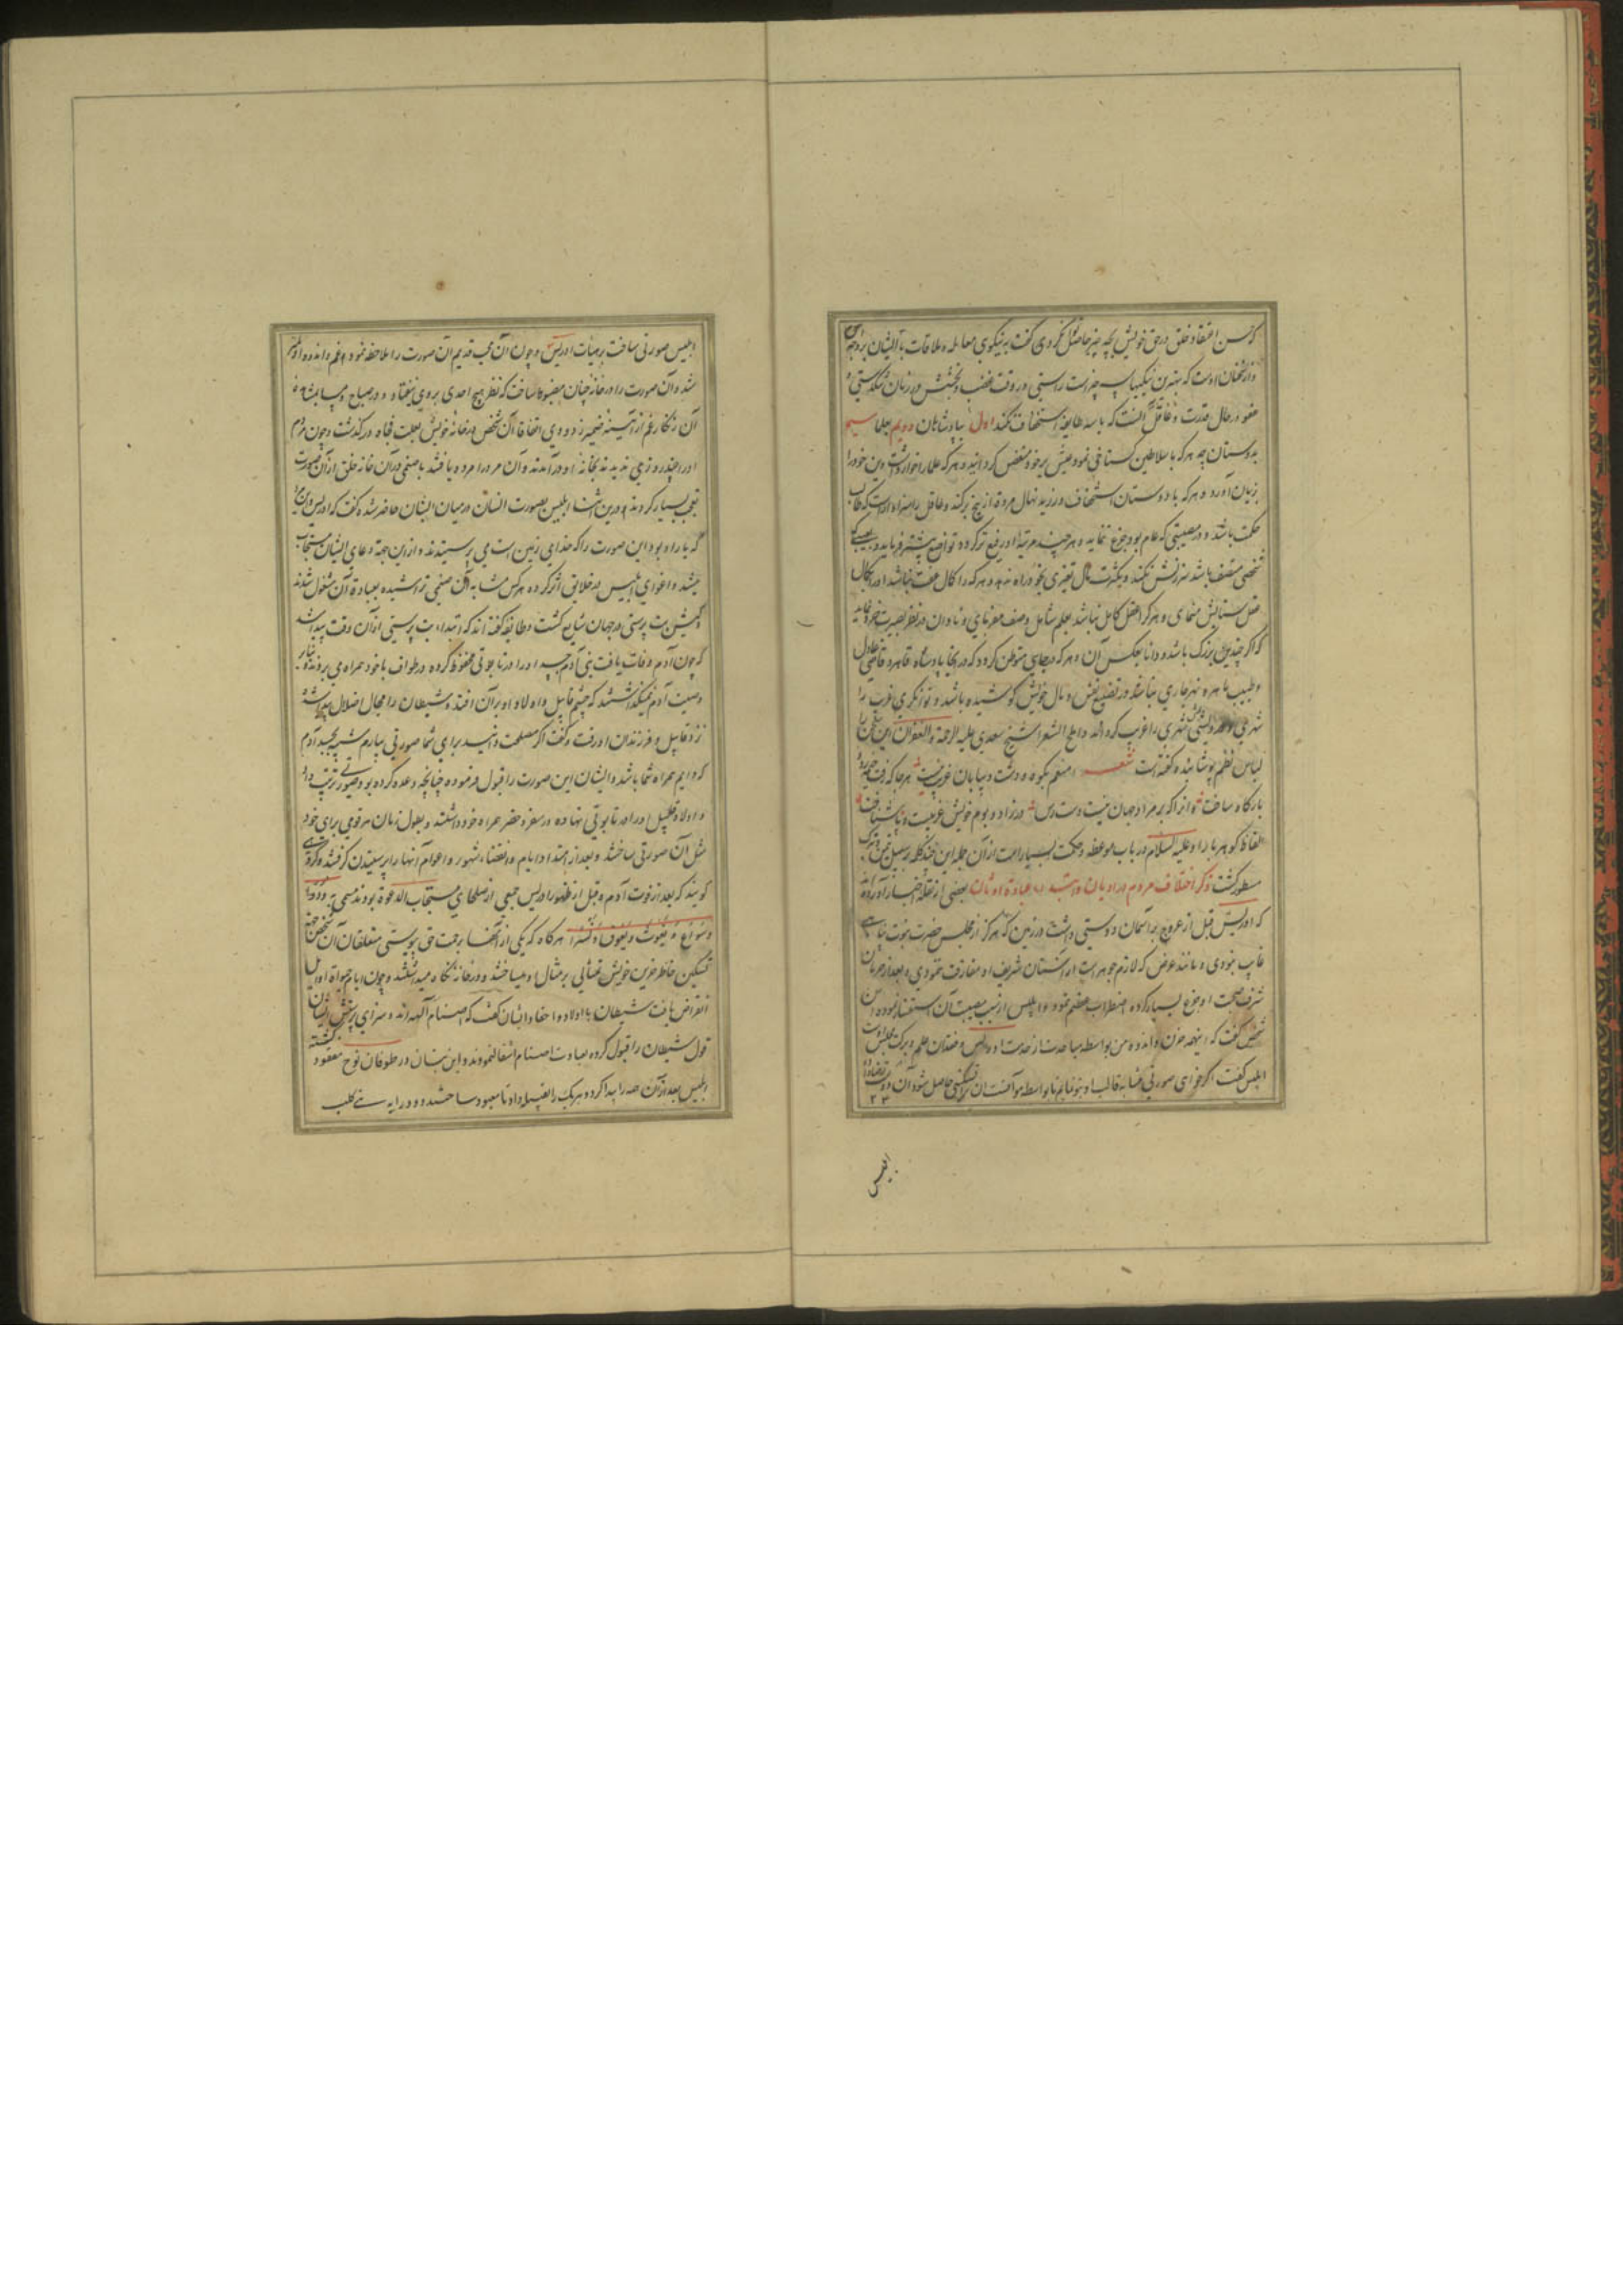 که حسن اعتقاد خلق در حق خویش بچه چیز حاصل کردی گفت به نیکویی معامله و ملاقات با ایشان بر وجهی
و از سخنان اوست که بهترین نیکیها سه چیز است راستی در وقت غضب و بخشش در زمان تنگدستی و
عفو در حال قدرت و عاقل آنست که با سه طایفه استخفاف نکند اول بپادشاهان دویم بعلما سیم
بدوستان چه هر که با سلاطین گستاخی نمود عیش بر خود منغص گردانید و هر که علما را خوار داشت دین خود را
بزیان آورد و هر که با دوستان استخفاف ورزید نهال مروة از بیخ برکند و عاقل را سزاوار است که طالب
حکمت باشد و در مصیبتی که عام بود جزع ننماید و هر چند مرتبه او رفیع تر گردد تواضع بیشتر فرماید و
شخصی متصف باشد سرزنش نکند و بکثرت مال تغییری بخود راه ندهد و هر که را کمال عفت نباشد او را بکمال
عقل ستایش منمای و هر کرا عقل کامل نباشد بعلم شامل وصف مفرمای و نادان در نظر بصیرت خرد نماید
که اگر چندین بزرگ باشد و دانا بعکس آن و هر که بجایی متوطن گردد که در آنجا پادشاه قاهر و قاضی عادل
و طبیب ماهر و نهر جاری نباشد در تضییع نفس و مال خویش کوشیده باشد و توانگری غریب را
شهری و درویشی شهری را غریب گرداند و املح الشعرا شیخ سعدی علیه الرحمة و الغفران این سخن را
لباس نظم پوشانیده گفته است شعر منعم بکوه و دشت و بیابان غریب نیست هر جا که رفت خیمه زد و
بارگاه ساخت و انرا که بر مراد جهان نیست دست رس در زاد و بوم خویش غریبست و ناشناخت
الفاظ گوهربار او علیه السلام در باب موعظه و حکمت بسیار است از آن جمله این چند کلمه بر سبیل تیمن و تبرک
مسطور گشت ذکر اختلاف مردم در ادیان و ابتداء عبادة اوثان بعضی از نقله اخبار آورده اند
که ادریس قبل از عروج بر آسمان دوستی داشت در زمین که هرگز از مجلس حضرت نبوت پناهی
غایب نبودی و مانند عرض که لازم جوهر است از آستان شریف او مفارقت ننمودی و بعد از حرمان
شرف صحبت او جزع بسیار کرده اضطراب عظیم نمود و ابلیس از سبب مصیبت آن استفسار نموده آن
شخص گفت که اینهمه حزن و اندوه من بواسطه مباعدت از خدمت ادریس و فقدان علم و برکت مجلس اوست
ابلیس گفت اگر خواهی صورتی مشابه قالب او بتو نمایم تا بواسطه موآنست آن ترا تسکینی حاصل شود آن دوست
۲۳
ابلیس
ابلیس صورتی ساخت بر هیات ادریس و چون آن محب قدیم آن صورت را ملاحظه نمود غم و اندوه او کمتر
شد و آن صورت را در خانه چنان مضبوط ساخت که نظر هیچ احدی بروی نیفتاد و در صباح و مسا بمشاهده
آن زنگار غم از آئینه ضمیر زدودی اتفاقا آن شخص در خانه خویش بعلت فجاه درگذشت و چون مردم
او را چند روزی ندیدند بخانه او درآمدند و آن مرد را مرده یافتند با صنمی در آن خانه خلق از آن صورت
تعجب بسیار کردند و درین اثنا ابلیس بصورت انسان در میان ایشان حاضر شده گفت که ادریس و این مرد
که یار او بود این صورت را که خدای زمین است می پرستیدند و از این جهة دعای ایشان مستجاب
میشد و اغوای ابلیس در خلایق اثر کرده هر کس مشابه آن صنمی تراشیده بعبادة آن مشغول شدند
و کیش بت پرستی در جهان شایع گشت و طایفه گفته اند که ابتداء بت پرستی از آن وقت پیدا شد
که چون آدم وفات یافت بنی آدم جسد او را در تابوتی محفوظ کرده در طواف با خود همراه می بردند و بنابر
وصیت آدم نمیگذاشتند که چشم قابیل و اولاد او بر آن افتد و شیطان را مجال اضلال پیدا شده
نزد قابیل و فرزندان او رفت و گفت اگر مصلحت دانید برای شما صورتی بسازم شبیه بجسد آدم
که دایم همراه شما باشد و ایشان این صورت را قبول فرموده چنانچه وعده کرده بود صورتی ترتیب داد
و اولاد قابیل در تابوتی نهاده در سفر و حضر همراه خود داشتند و بطول زمان هر قومی برای خود
مثل آن صورتی ساختند و بعد از امتداد ایام و انقضاء شهور و اعوام آنها را پرستیدن گرفتند و گروهی
گویند که بعد از فوت آدم و قبل از ظهور ادریس جمعی از صلحای مستجاب الدعوة بودند مسمی به ود و
و سواع و یغوث و یعوق و نسر هر گاه که یکی از آنها برحمت حق پیوستی متعلقان آن شخص جهة
تسکین خاطر حزین خویش تمثالی بر مثال او میساختند و در خانه نگاه میداشتند و چون ایام حیوة اوایل
انقراض یافت شیطان با اولاد و احفاد ایشان گفت که اصنام آلهه اند و سزای پرستش ایشان
قول شیطان را قبول کرده بعبادت اصنام اشتغال نمودند و این بتان در طوفان نوح مفقود گشته
ابلیس بعد از آن همه را پیدا کرد و هر یک را بقبیله داد تا معبود ساختند و ود را به بنی کلب